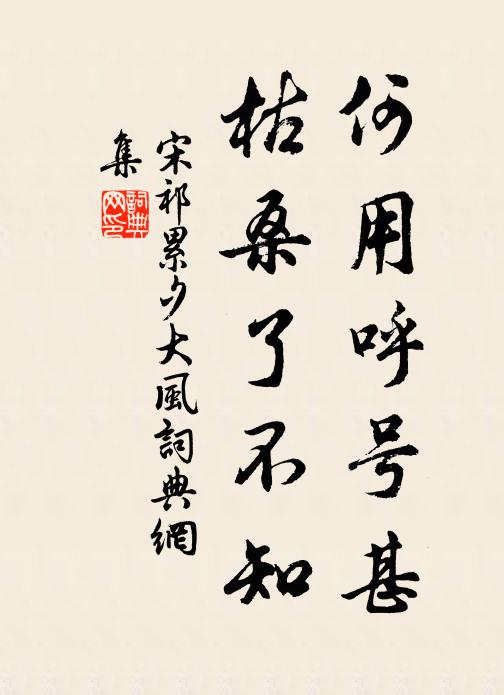 何用呼号甚
枯桑了不知
宋祁累夕大風詞典網
集
詞典
网印